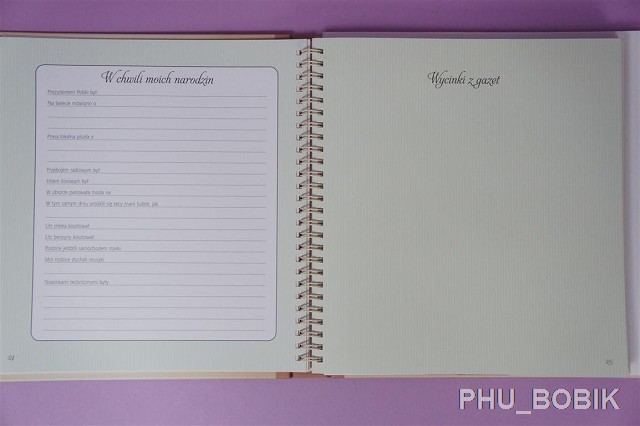 W chwili moich narodzin
Prezydentem Polski był
Na świecie mówiono o
Prasa lokalna pisała o
Przebojem radiowym był
Hitem kinowym był
W ubiorze panowała moda na
W tym samym dniu urodzili się tacy znani ludzie, jak
Litr mleka kosztował
Litr benzyny kosztował
Rodzice jeździli samochodem marki
Moi rodzice słuchali muzyki
Nowinkami technicznymi były
Wycinki z gazet
PHU_BOBIK